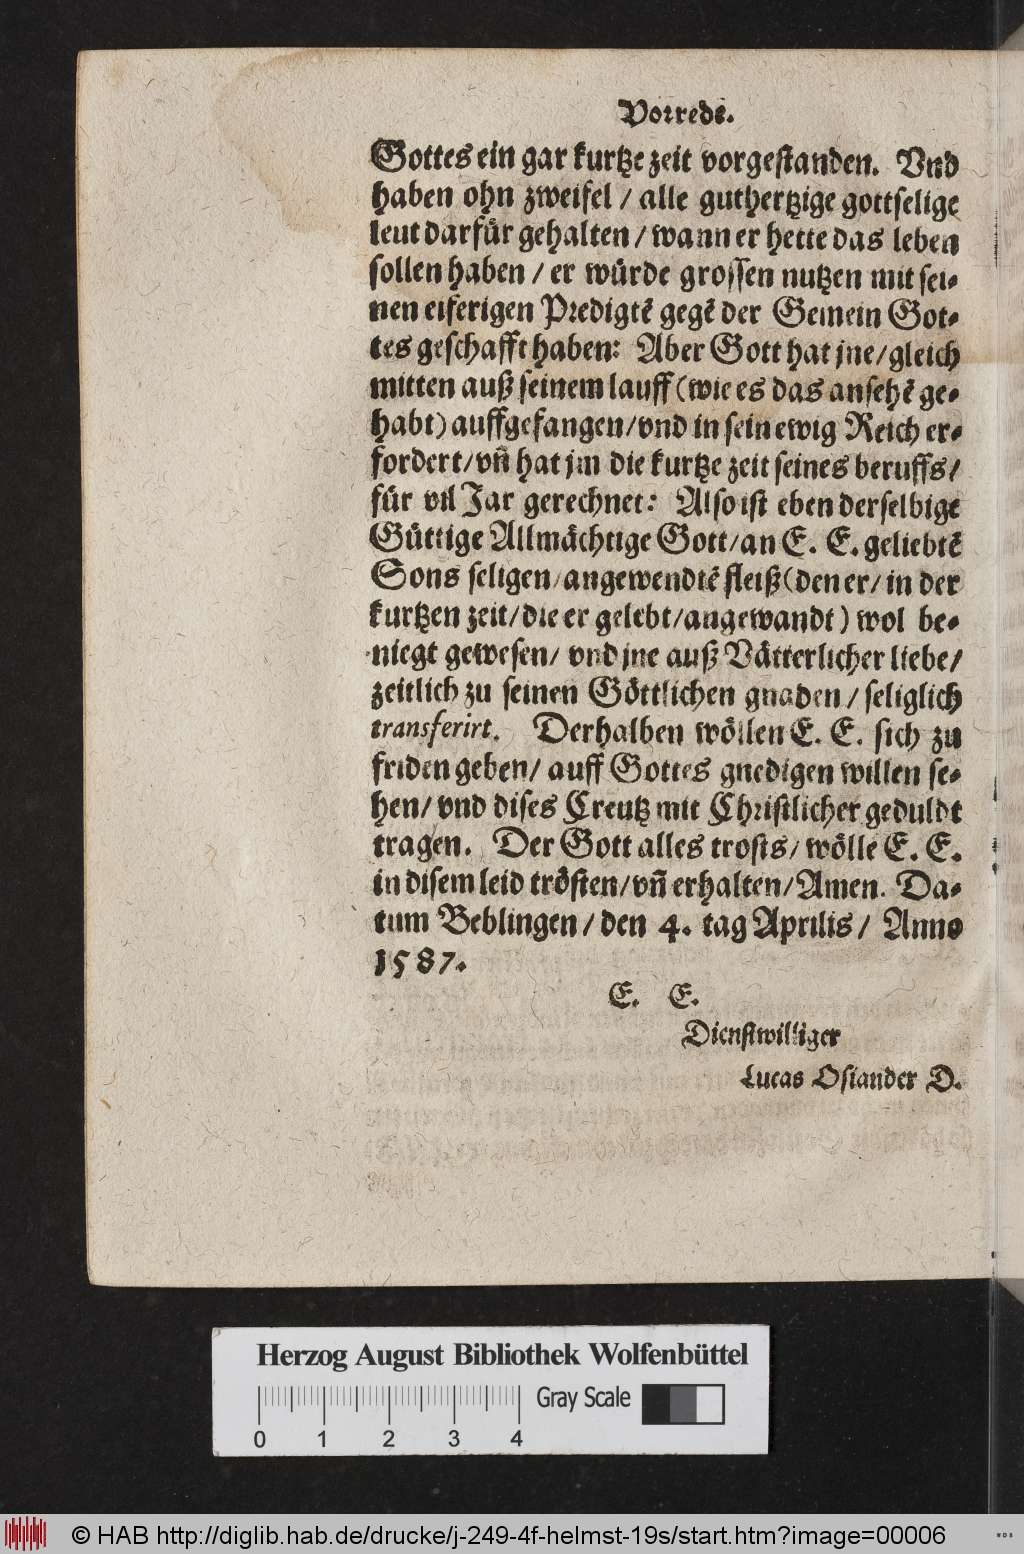 Vorrede.
Gottes ein gar kurtze zeit vorgestanden. Vnd
haben ohn zweifel / alle guthertzige gottselige
leut darfür gehalten / wann er hette das leben
sollen haben / er würde grossen nutzen mit sei-
nen eiferigen Predigtē gegē der Gemein Got-
tes geschafft haben: Aber Gott hat jne / gleich
mitten auß seinem lauff (wie es das ansehē ge-
habt) auffgefangen / vnd in sein ewig Reich er-
fordert / vn̄ hat jm die kurtze zeit seines beruffs /
für vil Jar gerechnet: Also ist eben derselbige
Güttige Allmächtige Gott / an E. E. geliebtē
Sons seligen / angewendtē fleiß (den er / in der
kurtzen zeit / die er gelebt / angewandt) wol be-
niegt gewesen / vnd jne auß Vätterlicher liebe /
zeitlich zu seinen Göttlichen gnaden / seliglich
transferirt. Derhalben wöllen E. E. sich zu
friden geben / auff Gottes gnedigen willen se-
hen / vnd dises Creutz mit Christlicher geduldt
tragen. Der Gott alles trosts / wölle E. E.
in disem leid trösten / vn̄ erhalten / Amen. Da-
tum Beblingen / den 4. tag Aprilis / Anno
1587.
E. E.
Dienstwilliger
Lucas Osiander D.
Herzog August Bibliothek Wolfenbüttel
Gray Scale
0 1 2 3 4
© HAB http://diglib.hab.de/drucke/j-249-4f-helmst-19s/start.htm?image=00006